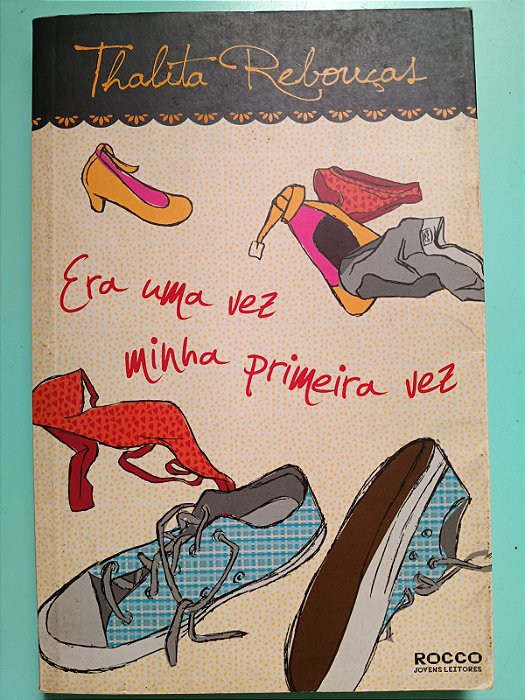 Thalita Rebouças
Era uma vez
minha primeira vez
ROCCO
JOVENS LEITORES